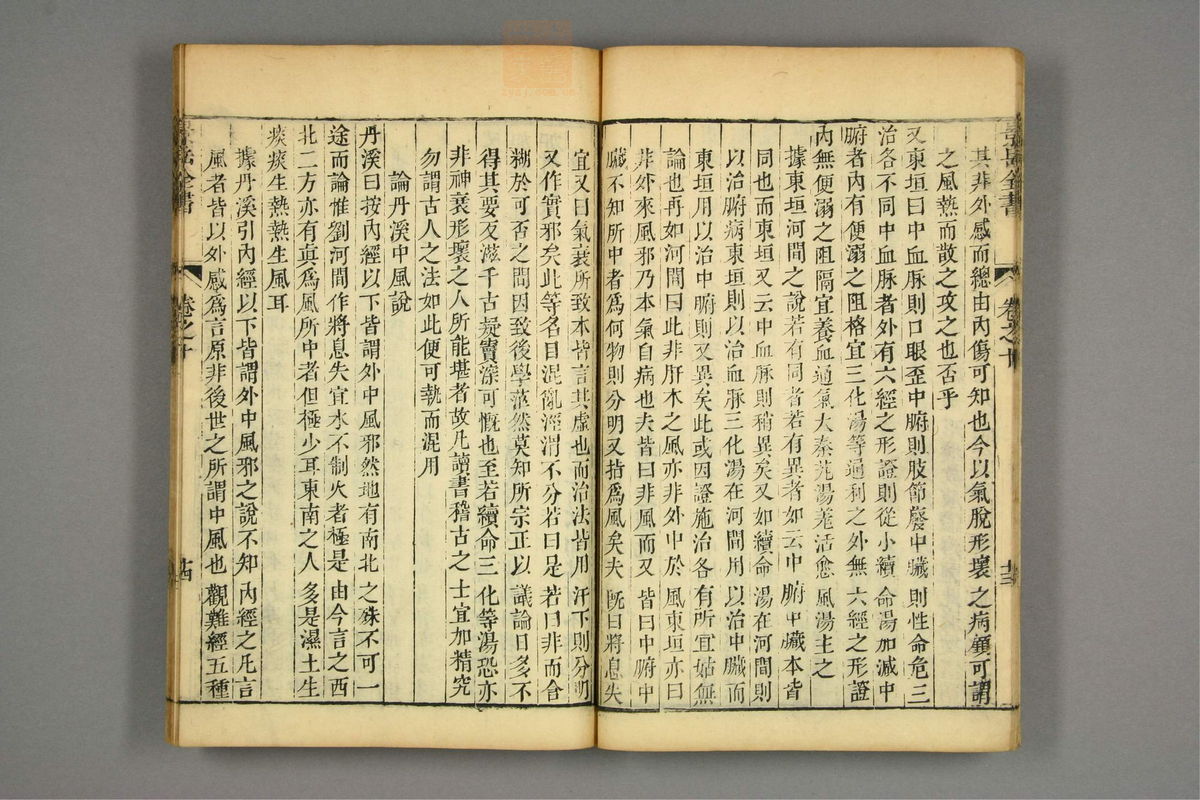 其非外感而總由內傷可知也今以氣脫形壞之病顧可謂
之風熱而散之攻之也否乎
又東垣曰中血脉則口眼歪中腑則肢節廢中臟則性命危三
治各不同中血脉者外有六經之形證則從小續命湯加減中
腑者內有便溺之阻格宜三化湯等通利之外無六經之形證
內無便溺之阻隔宜養血通氣大秦艽湯羗活愈風湯主之
據東垣河間之說若有同者若有異者如云中腑中臟本皆
同也而東垣又云中血脉則稍異矣又如續命湯在河間則
以治腑病東垣則以治血脉三化湯在河間用以治中臟而
東垣用以治中腑則又異矣此或因證施治各有所宜姑無
論也再如河間曰此非肝木之風亦非外中於風東垣亦曰
非外來風邪乃本氣自病也夫皆曰非風而又皆曰中腑中
臟不知所中者爲何物則分明又指爲風矣夫旣曰將息失
宜又曰氣衰所致本皆言其虛也而治法皆用汗下則分明
又作實邪矣此等名目混亂淄渭不分若曰是若曰非而含
糊於可否之間因致後學茫然莫知所宗正以議論日多不
得其要反滋千古疑竇深可慨也至若續命三化等湯恐亦
非神衰形壞之人所能堪者故凡讀書稽古之士宜加精究
勿謂古人之法如此便可執而混用
論丹溪中風說
丹溪曰按內經以下皆謂外中風邪然地有南北之殊不可一
途而論惟劉河間作將息失宜水不制火者極是由今言之西
北二方亦有眞爲風所中者但極少耳東南之人多是濕土生
痰痰生熱熱生風耳
據丹溪引內經以下皆謂外中風邪之說不知內經之凡言
風者皆以外感爲言原非後世之所謂中風也觀難經五種
景岳全書
卷之十
廿四